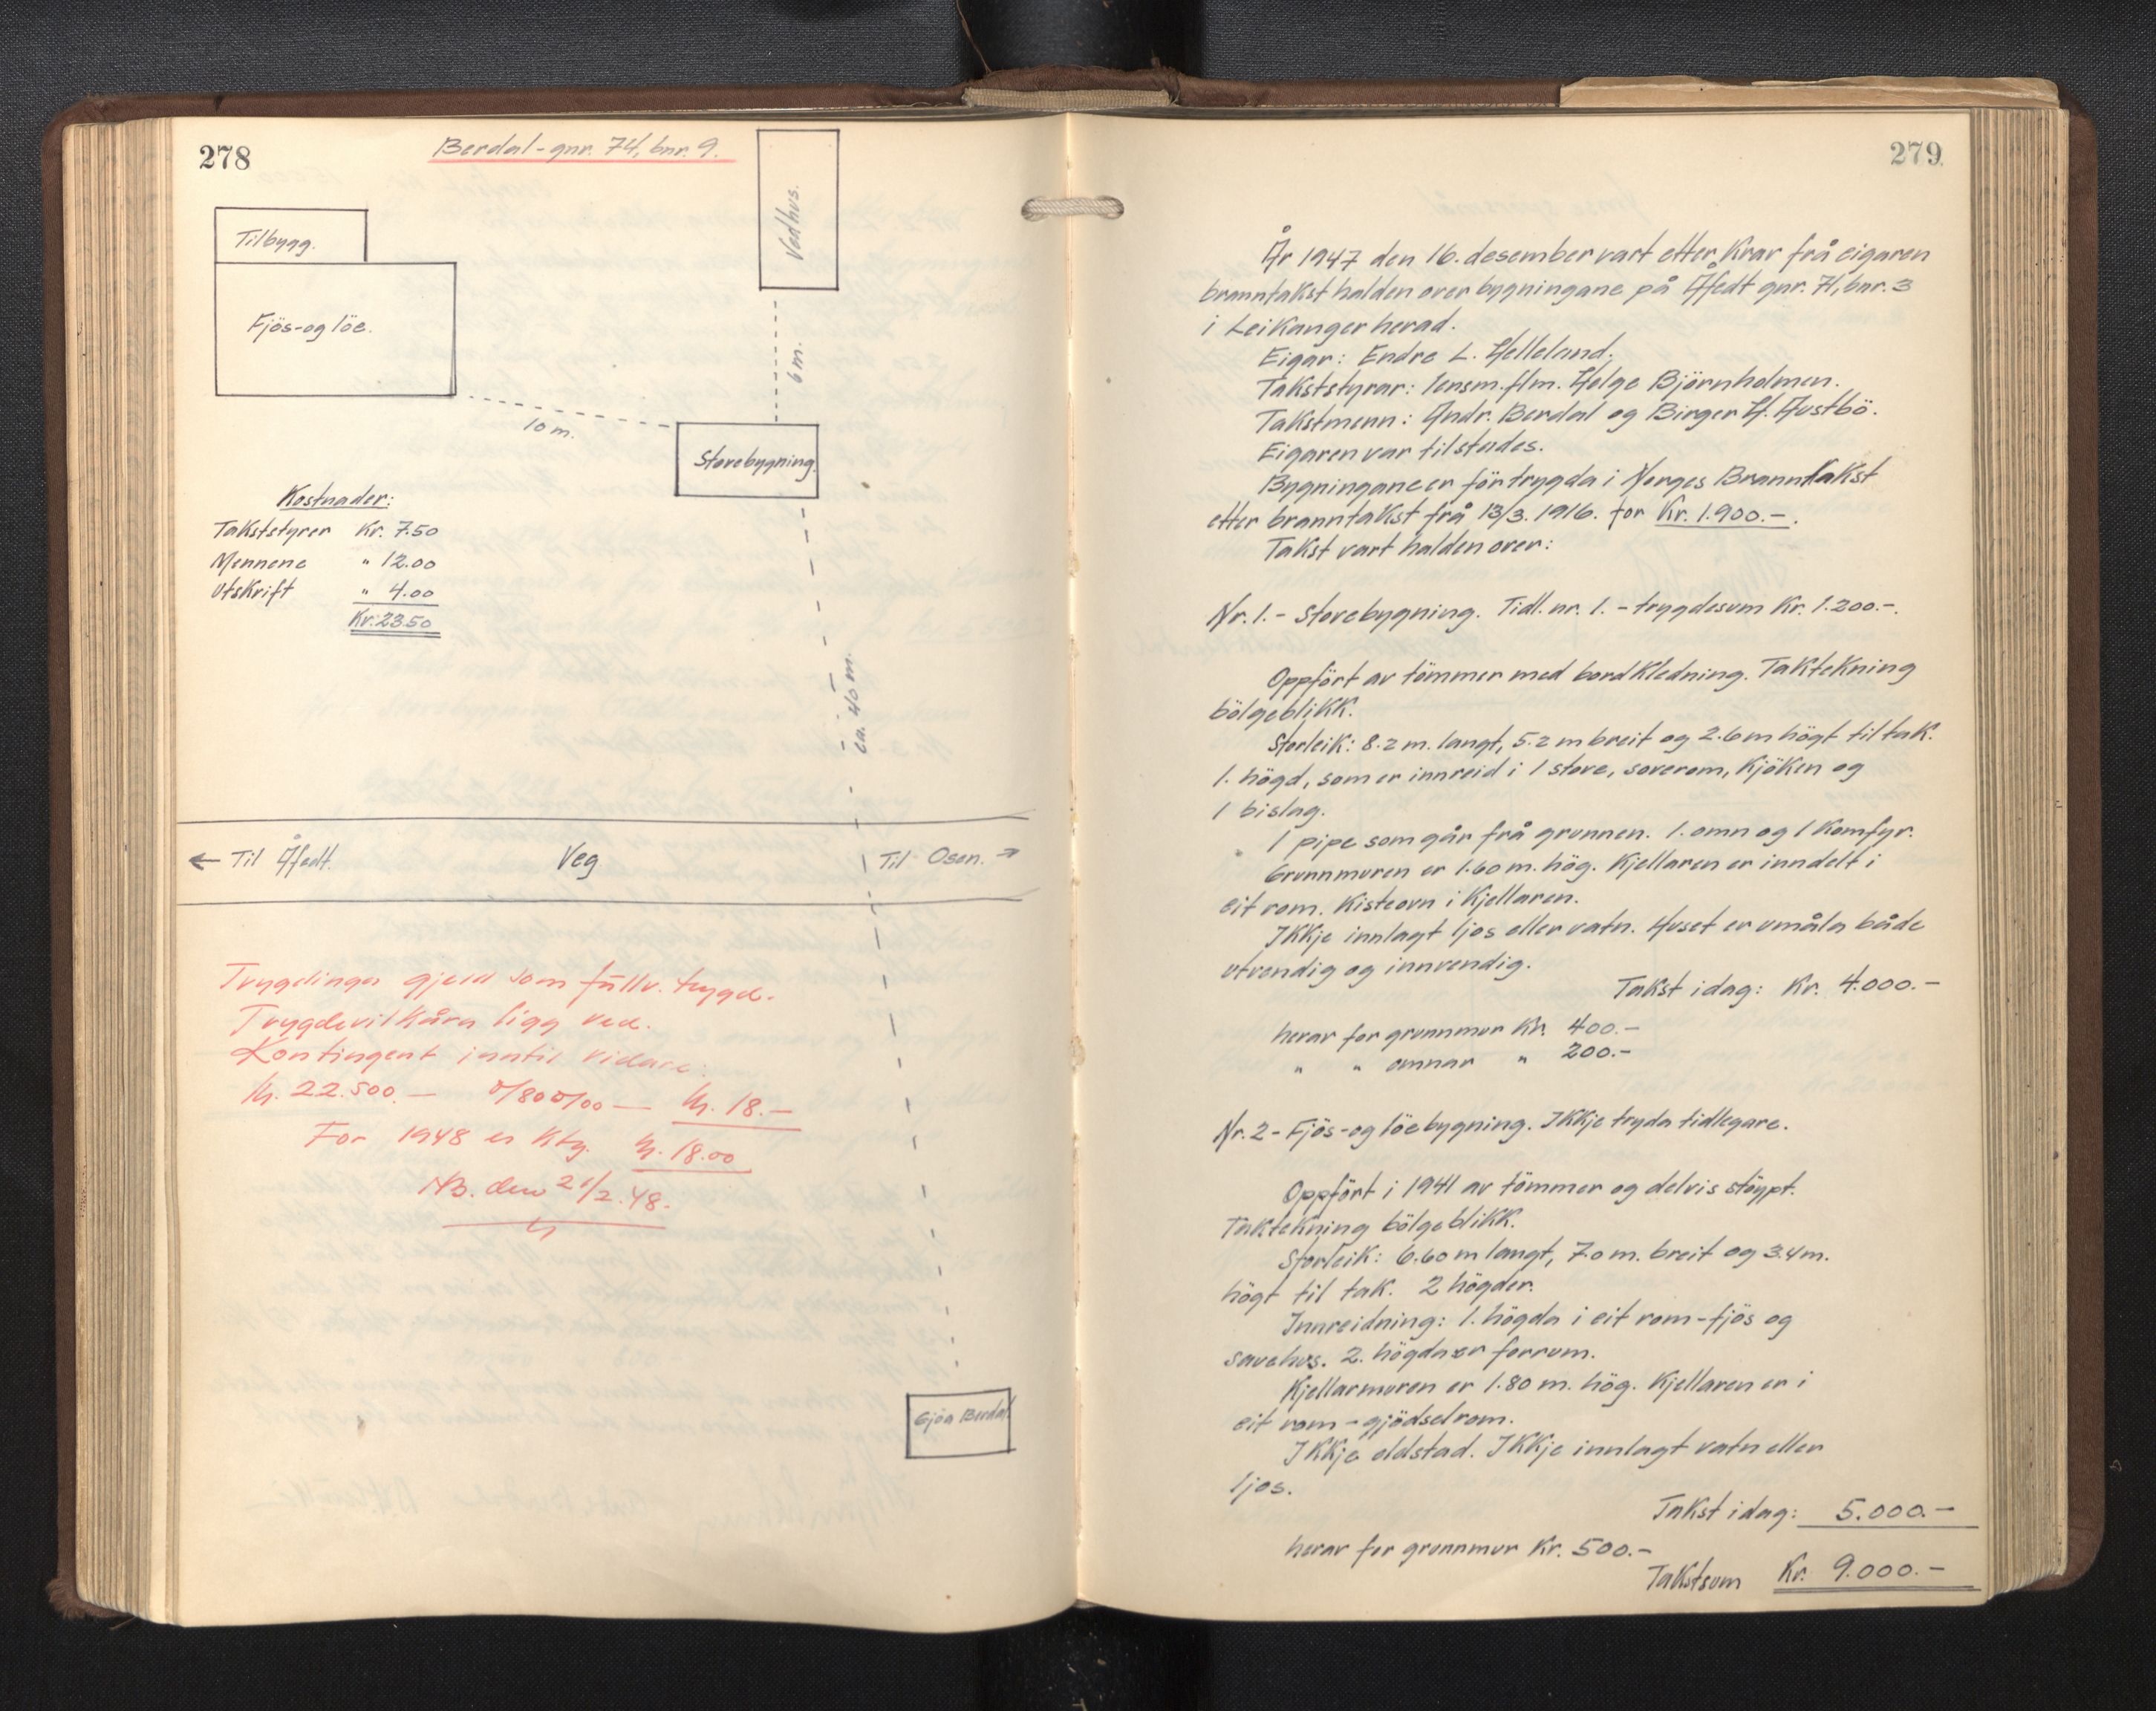 278
Berdal - gnr. 74, bnr. 9.
Vedhus.
Tilbygg.
Fjös- og löe.
6 m.
10 m.
Stovebygning.
Kostnader:
Takststyrer Kr. 7.50
Mennene " 12.00
Utskrift " 4.00
Kr. 23.50
ca. 40 m.
← Til Åfedt. Veg Til Osen. →
Trygdinga gjeld som fullv. trygd.
Trygdevilkåra ligg ved.
Kontingent inntil vidare:
Kr. 22.500.— 0/80 0/00 — Kr. 18.—
For 1948 er Ktg. Kr. 18.00
NB. den 21/2.48.
Gjöa Berdal
279
År 1947 den 16. desember vart etter krav frå eigaren
branntakst halden over bygningane på Åfedt gnr. 71, bnr. 3
i Leikanger herad.
Eigar: Endre L. Helleland.
Takststyrar: lensm.flm. Helge Björnholmen.
Takstmenn: Andr. Berdal og Birger H. Austbö.
Eigaren var tilstades.
Bygningane er förtrygda i Norges Branntakst
etter branntakst frå 13/3. 1916. for Kr. 1.900.-.
Takst vart halden over:
Nr. 1. - Stovebygning. Tidl. nr. 1. - trygdesum Kr. 1.200.-.
Oppfört av tömmer med bordkledning. Taktekning
bölgeblikk.
Storleik: 8.2 m. langt, 5.2 m breit og 2.6 m högt til tak.
1. högd, som er innreid i 1 stove, soverom, kjöken og
1 bislag.
1 pipe som går frå grunnen. 1. omn og 1 komfyr.
Grunnmuren er 1.60 m. hög. Kjellaren er inndelt i
eit rom. Kisteovn i kjellaren.
Ikkje innlagt ljos eller vatn. Huset er umåla både
utvendig og innvendig.
Takst idag: Kr. 4.000.-
herav for grunnmur Kr. 400.-
" " omnar " 200.-
Nr. 2 - Fjös- og löebygning. Ikkje tryda tidlegare.
Oppfört i 1941 av tömmer og delvis stöypt.
Taktekning bölgeblikk.
Storleik: 6.60 m langt, 7.0 m. breit og 3.4 m.
högt til tak. 2 högder.
Innreidning: 1. högda i eit rom - fjös og
sauehus. 2. högda er forrum.
Kjellarmuren er 1.80 m. hög. Kjellaren er i
eit rom - gjödselrom.
Ikkje eldstad. Ikkje innlagt vatn eller
ljos.
Takst idag: 5.000.-
herav for grunnmur Kr. 500.-
Takstsum Kr. 9.000.-